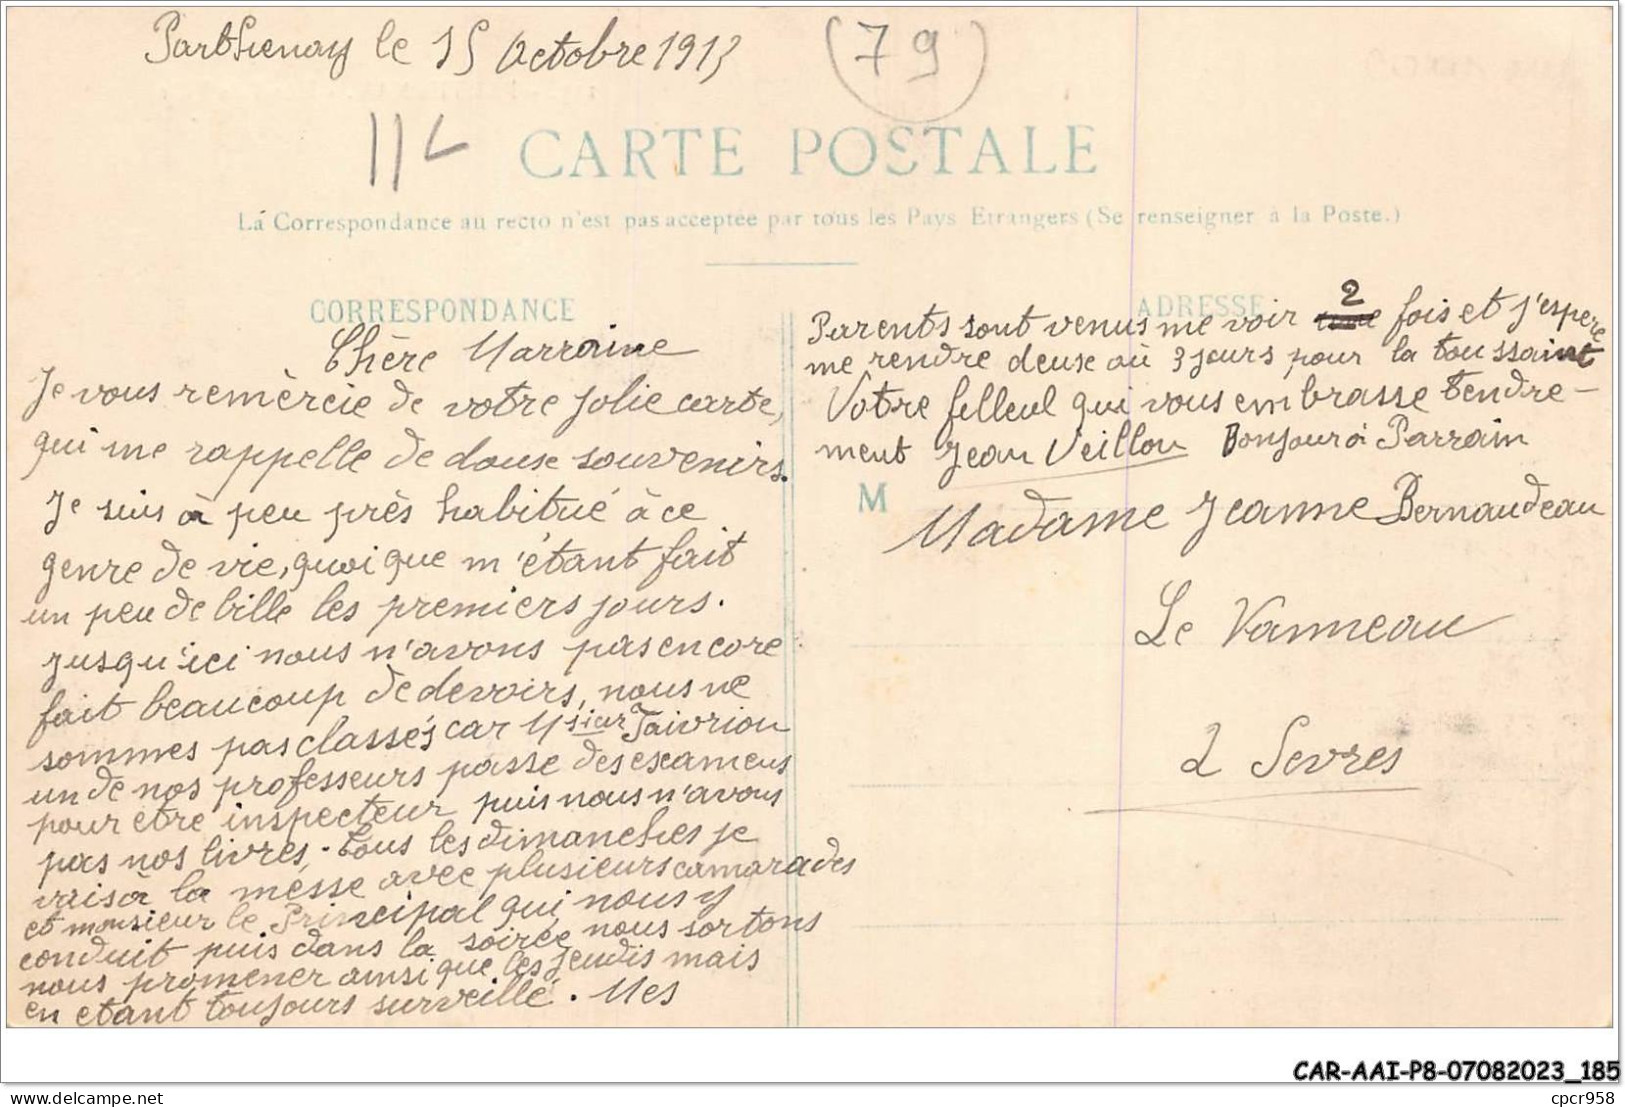 Parthenay le 15 Octobre 1913
(79)
CARTE POSTALE
La Correspondance au recto n'est pas acceptée par tous les Pays Etrangers (Se renseigner à la Poste.)
CORRESPONDANCE
Chère Marraine
Je vous remèrcie de votre jolie carte,
qui me rappelle de douse souvenirs.
Je suis à peu près habitué à ce
genre de vie, quoi que m'étant fait
un peu de bille les premiers jours.
jusqu'ici nous n'avons pas encore
fait beaucoup de devoirs, nous ne
sommes pas classés car Msieur Jaivrion
un de nos professeurs passe des examens
pour etre inspecteur puis nous n'avons
pas nos livres. Tous les dimanches je
vais à la messe avec plusieurs camarades
et monsieur le Principal qui nous y
conduit puis dans la soirée nous sortons
nous promener ainsi que les jeudis mais
en etant toujours surveillé. Mes
ADRESSE
Parents sont venus me voir 2 fois et j'espere
me rendre deuse où 3 jours pour la toussaint
Votre filleul qui vous embrasse tendre-
ment Jean Veillon Bonjour à Parrain
M
Madame Jeanne Bernaudeau
Le Vanneau
2 Sevres
CAR-AAI-P8-07082023_185
delcampe.net
cpcr958